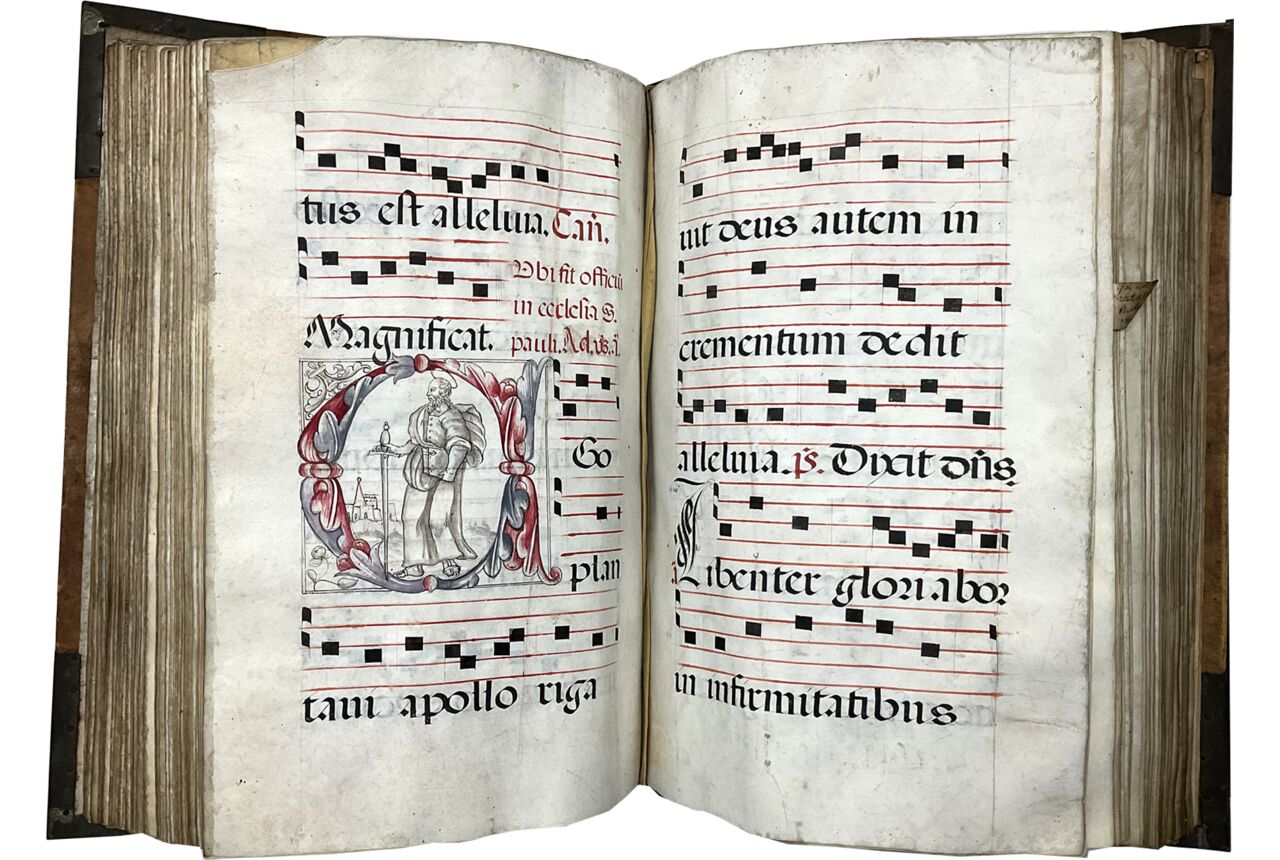 tus est alleluia. Cañ.
Vbi fit officiũ
in ecclesia S.
Magnificat.
pauli. Ad. vs. a.
EGo
plan
taui apollo riga
uit deus autem in
crementum dedit
alleluia. ps. Dixit dñs,
Libenter gloriabor
in infirmitatibus